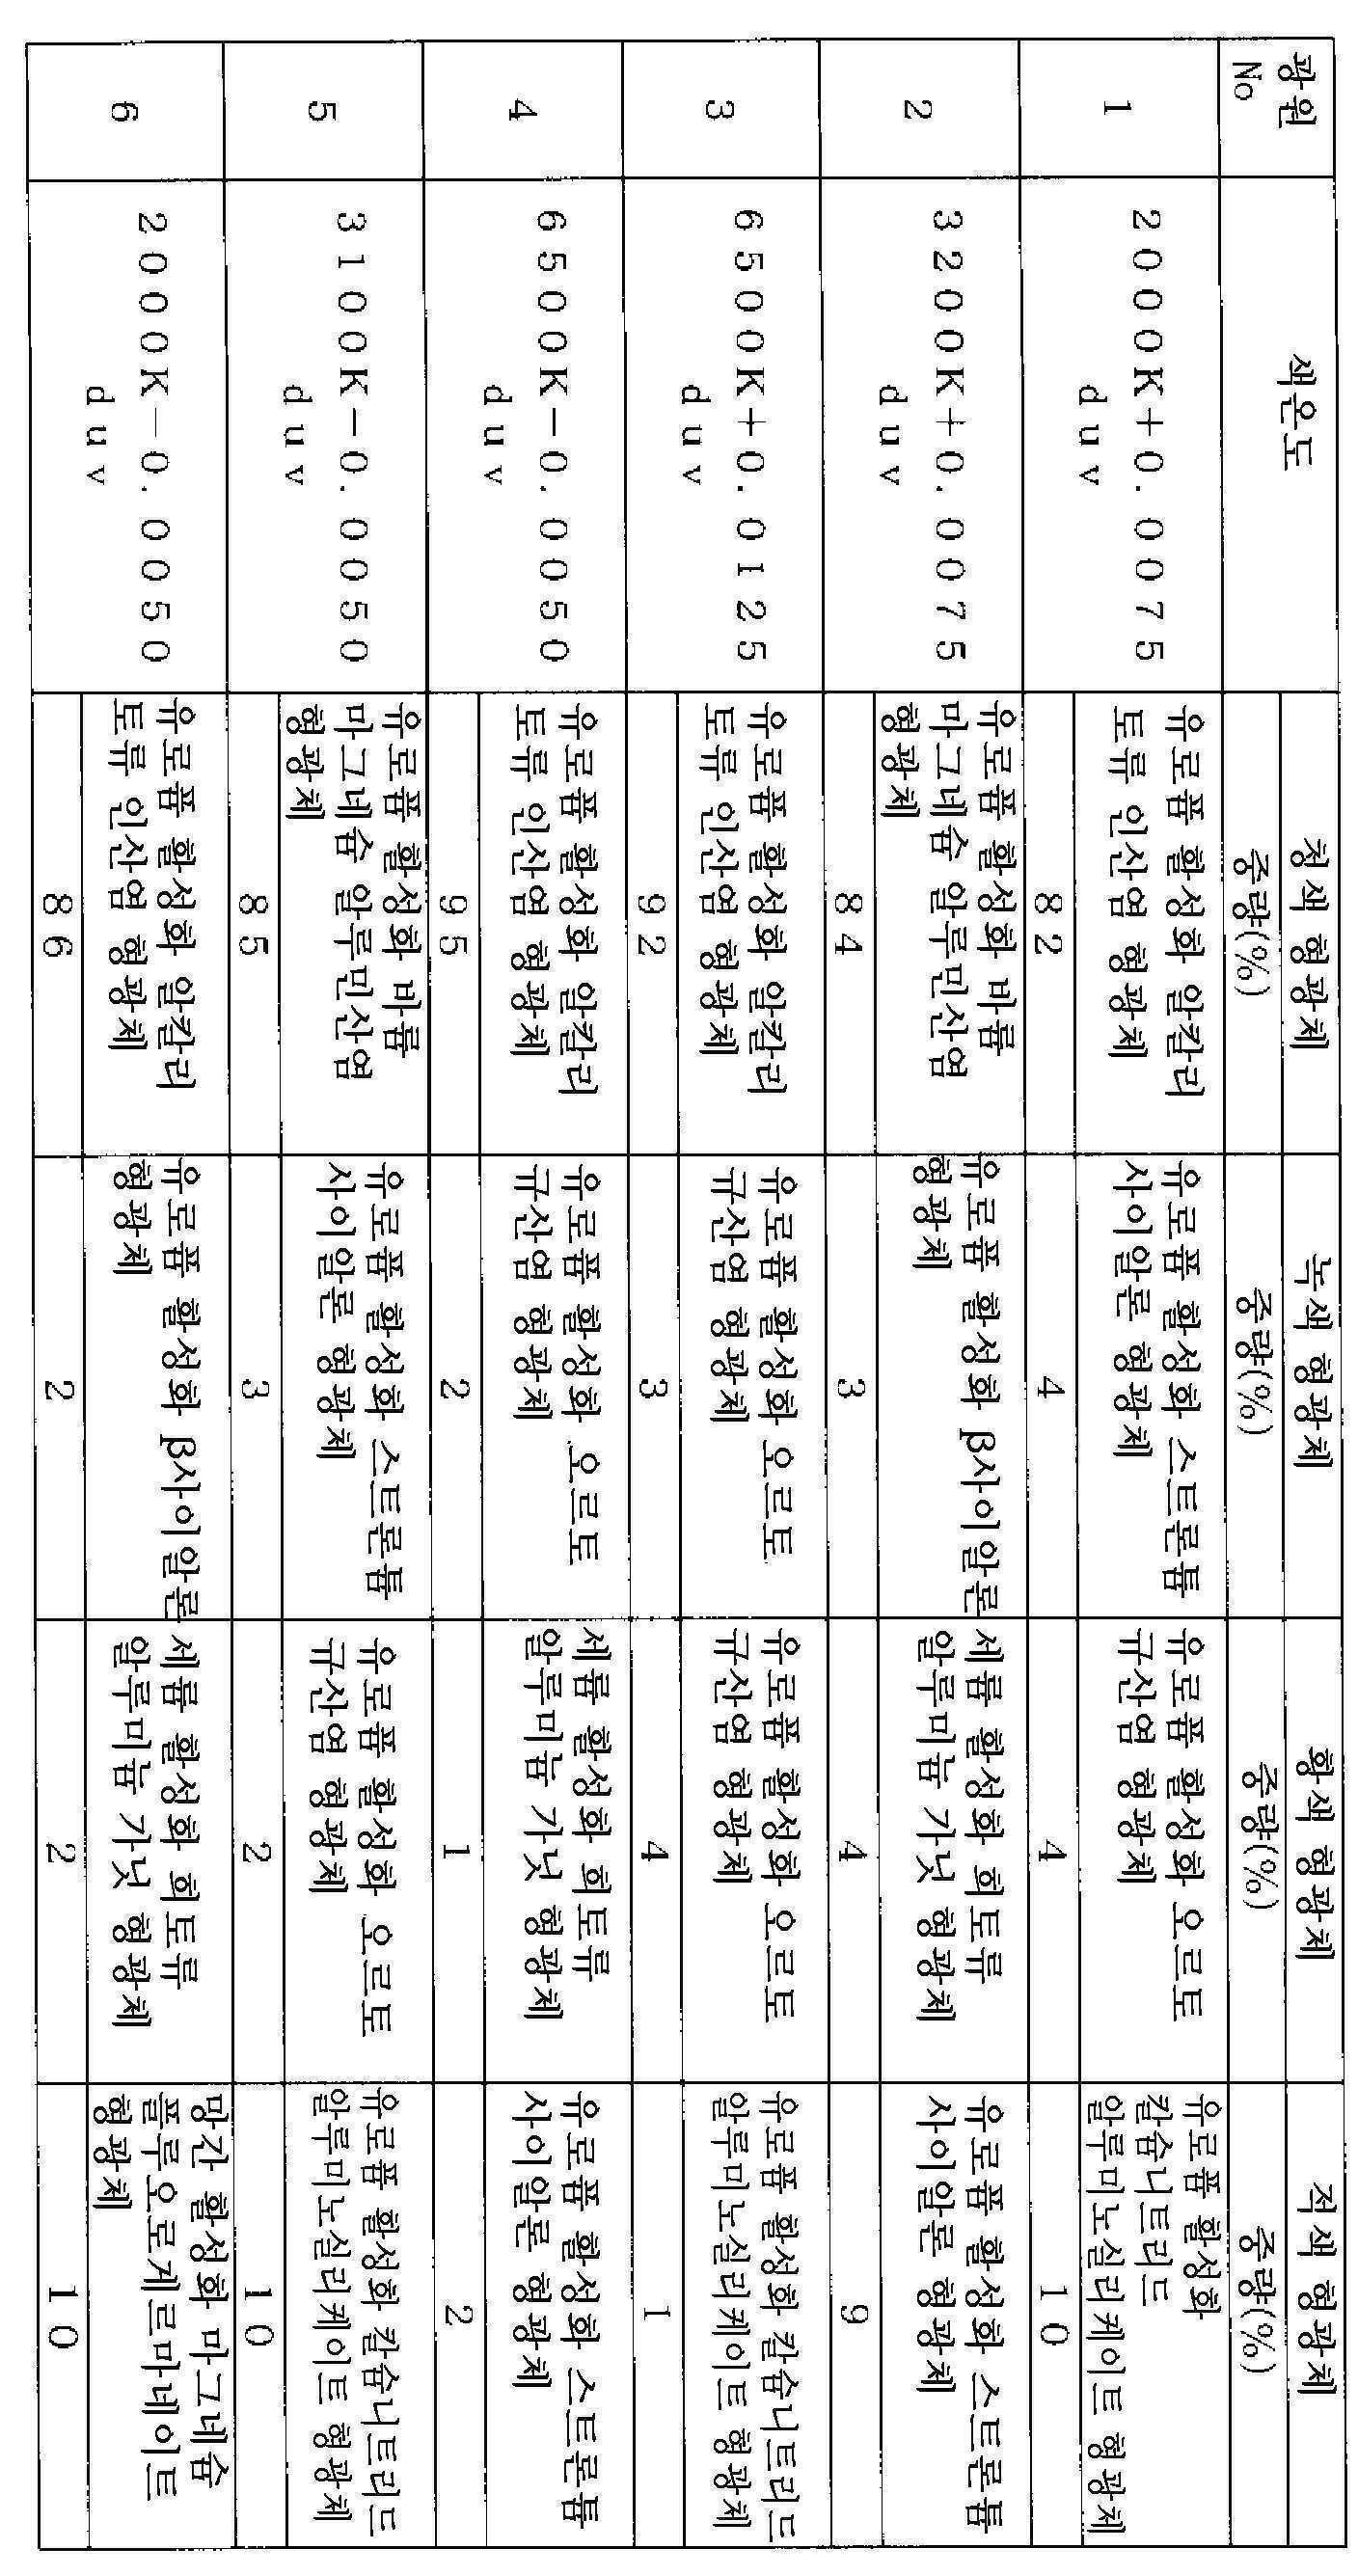 광원
No
색온도
청색 형광체
중량(%)
녹색 형광체
중량(%)
황색 형광체
중량(%)
적색 형광체
중량(%)
1
2000K+0.0075
duv
유로퓸 활성화 알칼리
토류 인산염 형광체
82
유로퓸 활성화 스트론튬
사이알론 형광체
4
유로퓸 활성화 오르토
규산염 형광체
4
유로퓸 활성화
칼슘니트리드
알루미노실리케이트 형광체
10
2
3200K+0.0075
duv
유로퓸 활성화 바륨
마그네슘 알루민산염
형광체
84
유로퓸 활성화 β사이알론
형광체
3
세륨 활성화 희토류
알루미늄 가닛 형광체
4
유로퓸 활성화 스트론튬
사이알론 형광체
9
3
6500K+0.0125
duv
유로퓸 활성화 알칼리
토류 인산염 형광체
92
유로퓸 활성화 오르토
규산염 형광체
3
유로퓸 활성화 오르토
규산염 형광체
4
유로퓸 활성화 칼슘니트리드
알루미노실리케이트 형광체
1
4
6500K-0.0050
duv
유로퓸 활성화 알칼리
토류 인산염 형광체
95
유로퓸 활성화 오르토
규산염 형광체
2
세륨 활성화 희토류
알루미늄 가닛 형광체
1
유로퓸 활성화 스트론튬
사이알론 형광체
2
5
3100K-0.0050
duv
유로퓸 활성화 바륨
마그네슘 알루민산염
형광체
85
유로퓸 활성화 스트론튬
사이알론 형광체
3
유로퓸 활성화 오르토
규산염 형광체
2
유로퓸 활성화 칼슘니트리드
알루미노실리케이트 형광체
10
6
2000K-0.0050
duv
유로퓸 활성화 알칼리
토류 인산염 형광체
86
유로퓸 활성화 β사이알론
형광체
2
세륨 활성화 희토류
알루미늄 가닛 형광체
2
망간 활성화 마그네슘
플루오로게르마네이트
형광체
10